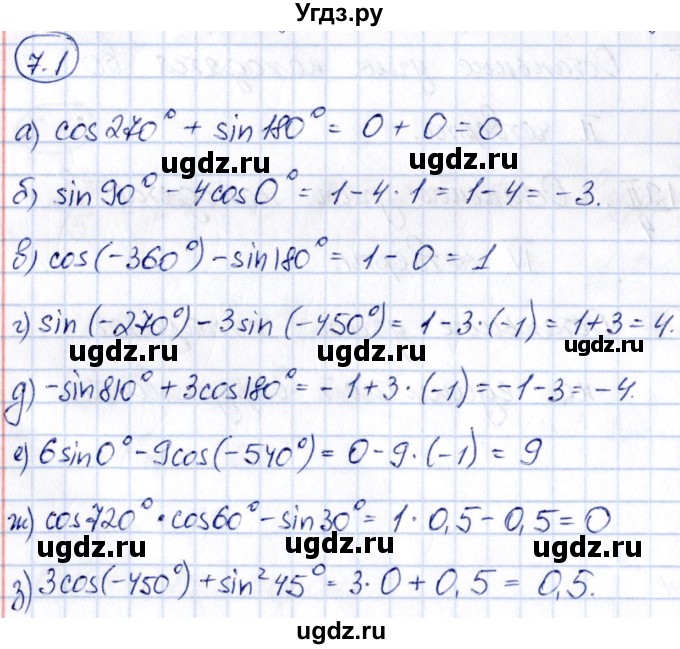 Угдз.ру
7.1
а) cos270° + sin180° = 0 + 0 = 0
ugdz.ru ugdz.ru
б) sin90° - 4cos0° = 1 - 4 · 1 = 1 - 4 = -3.
в) cos(-360°) - sin180° = 1 - 0 = 1
ugdz.ru ugdz.ru
г) sin(-270°) - 3sin(-450°) = 1 - 3 · (-1) = 1 + 3 = 4.
ugdz.ru ugdz.ru ugdz.ru
д) -sin810° + 3cos180° = -1 + 3 · (-1) = -1 - 3 = -4.
ugdz.ru ugdz.ru
е) 6sin0° - 9cos(-540°) = 0 - 9 · (-1) = 9
ugdz.ru ugdz.ru
ж) cos720° · cos60° - sin30° = 1 · 0,5 - 0,5 = 0
ugdz.ru ugdz.ru ugdz.ru
з) 3cos(-450°) + sin²45° = 3 · 0 + 0,5 = 0,5.
ugdz.ru